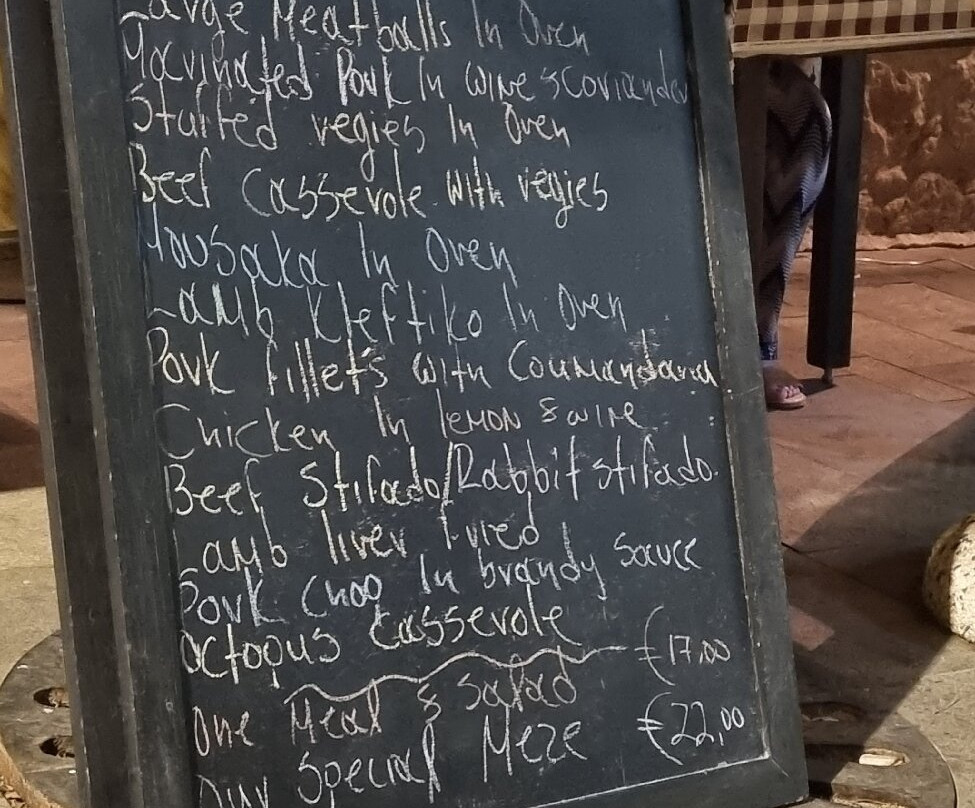 Large Meatballs In Oven
Marinated Pork In wine & coriander
Stuffed vegies In Oven
Beef Casserole with vegies
Mousaka In Oven
Lamb Kleftiko In Oven
Pork fillets with Coumandaria
Chicken In lemon & wine
Beef Stifado/Rabbit stifado.
Lamb liver fried
Pork Chop In brandy sauce
Octopus Casserole
One Meal & Salad €17,00
Our Special Meze €22,00